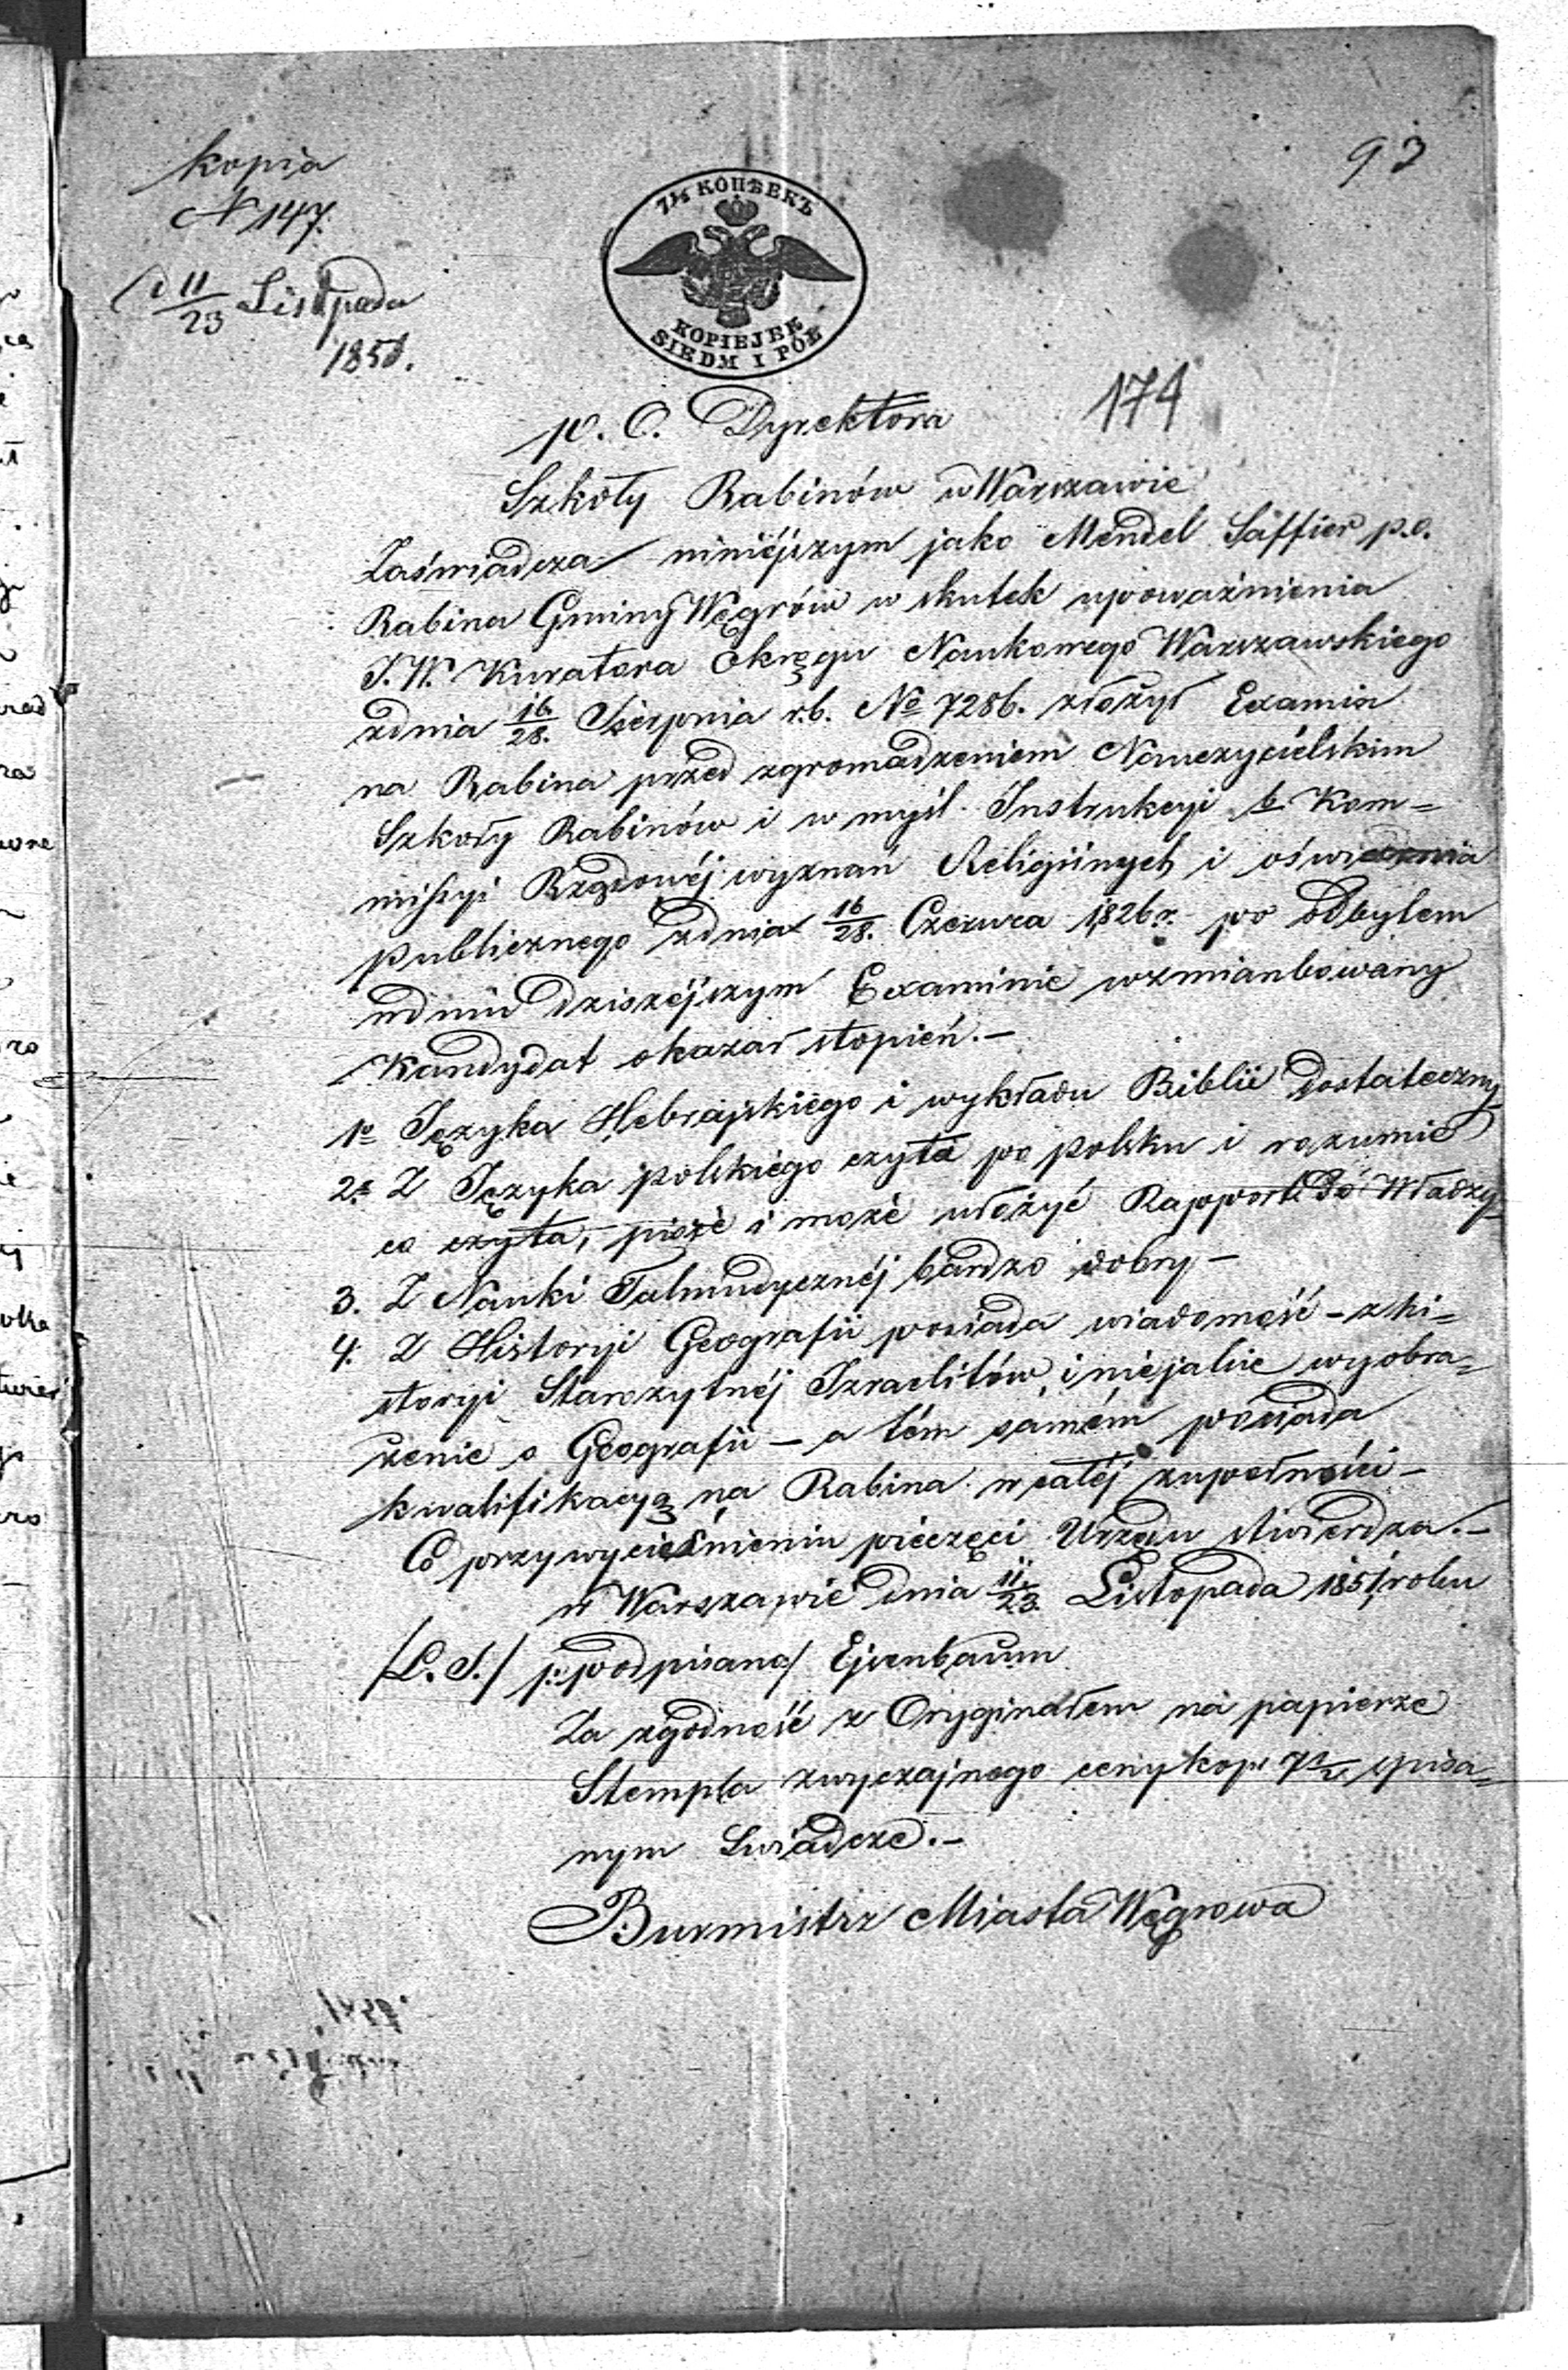 93
kopia
N 147.
d 11/23 Listopada
1851.
7½ КОПѢЕКЪ
KOPIEJEK
SIEDM I PÓŁ
174
p. O. Dyrektora
Szkoły Rabinów w Warszawie
Zaświadcza niniéjszym jako Mendel Saffier p.o.
Rabina Gminy Węgrów w skutek upoważnienia
J.W. Kuratora Okręgu Naukowego Warszawskiego
zdnia 16/28. Sierpnia r.b. No 7286. złożył Examin
na Rabina przed zgromadzeniem Nauczycielskim
Szkoły Rabinów i w myśl Instrukcyi b. Kom=
missyi Rządowéj wyznań Religiinych i oświecenia
publicznego zdnia 16/28. Czerwca 1826 r. po odbytem
wdniu dzisiéjszym Examinie wzmiankowany
Kandydat okazał stopień.—
1o Języka Hebrajskiego i wykładu Biblii dostateczny
2o Z Języka polskiego czyta po polsku i rozumie
co czyta, pisze i może ułożyć Rapport do Władzy
3. Z Nauki Talmudycznéj bardzo dobry—
4. Z Historyi Geografii posiada wiadomość – z hi=
storyi Starożytnéj Izraelitów, i niejakie wyobra=
żenie o Geografii — a tém samém posiada
kwalifikacyą na Rabina w całéj zupełności—
Co przy wyciśnieniu pieczęci Urzędu stwierdza.—
w Warszawie dnia 11/23. Listopada 1851 roku
/L.S./ podpisano/ Ejsenbaum
Za zgodność z Oryginałem na papierze
Stempla zwyczajnego ceny kop. 7½ spisa=
nym Swiadczę.—
Burmistrz Miasta Węgrowa